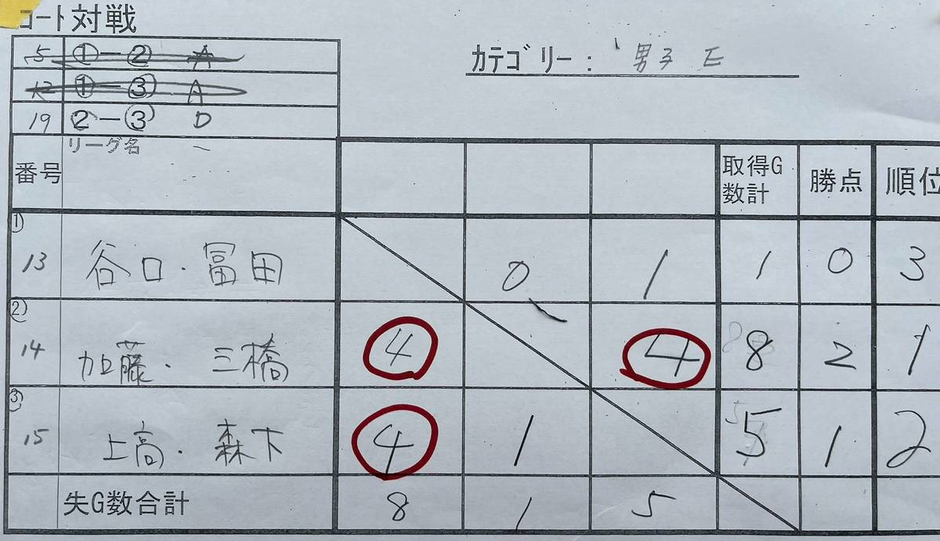 コート対戦
5 ①－② A
12 ①－③ A
19 ②－③ D
カテゴリー： 男子 E
番号 リーグ名 取得G数計 勝点 順位
① 13 谷口・冨田 0 1 1 0 3
② 14 加藤・三橋 4 4 8 2 1
③ 15 上高・森下 4 1 5 1 2
失G数合計 8 1 5